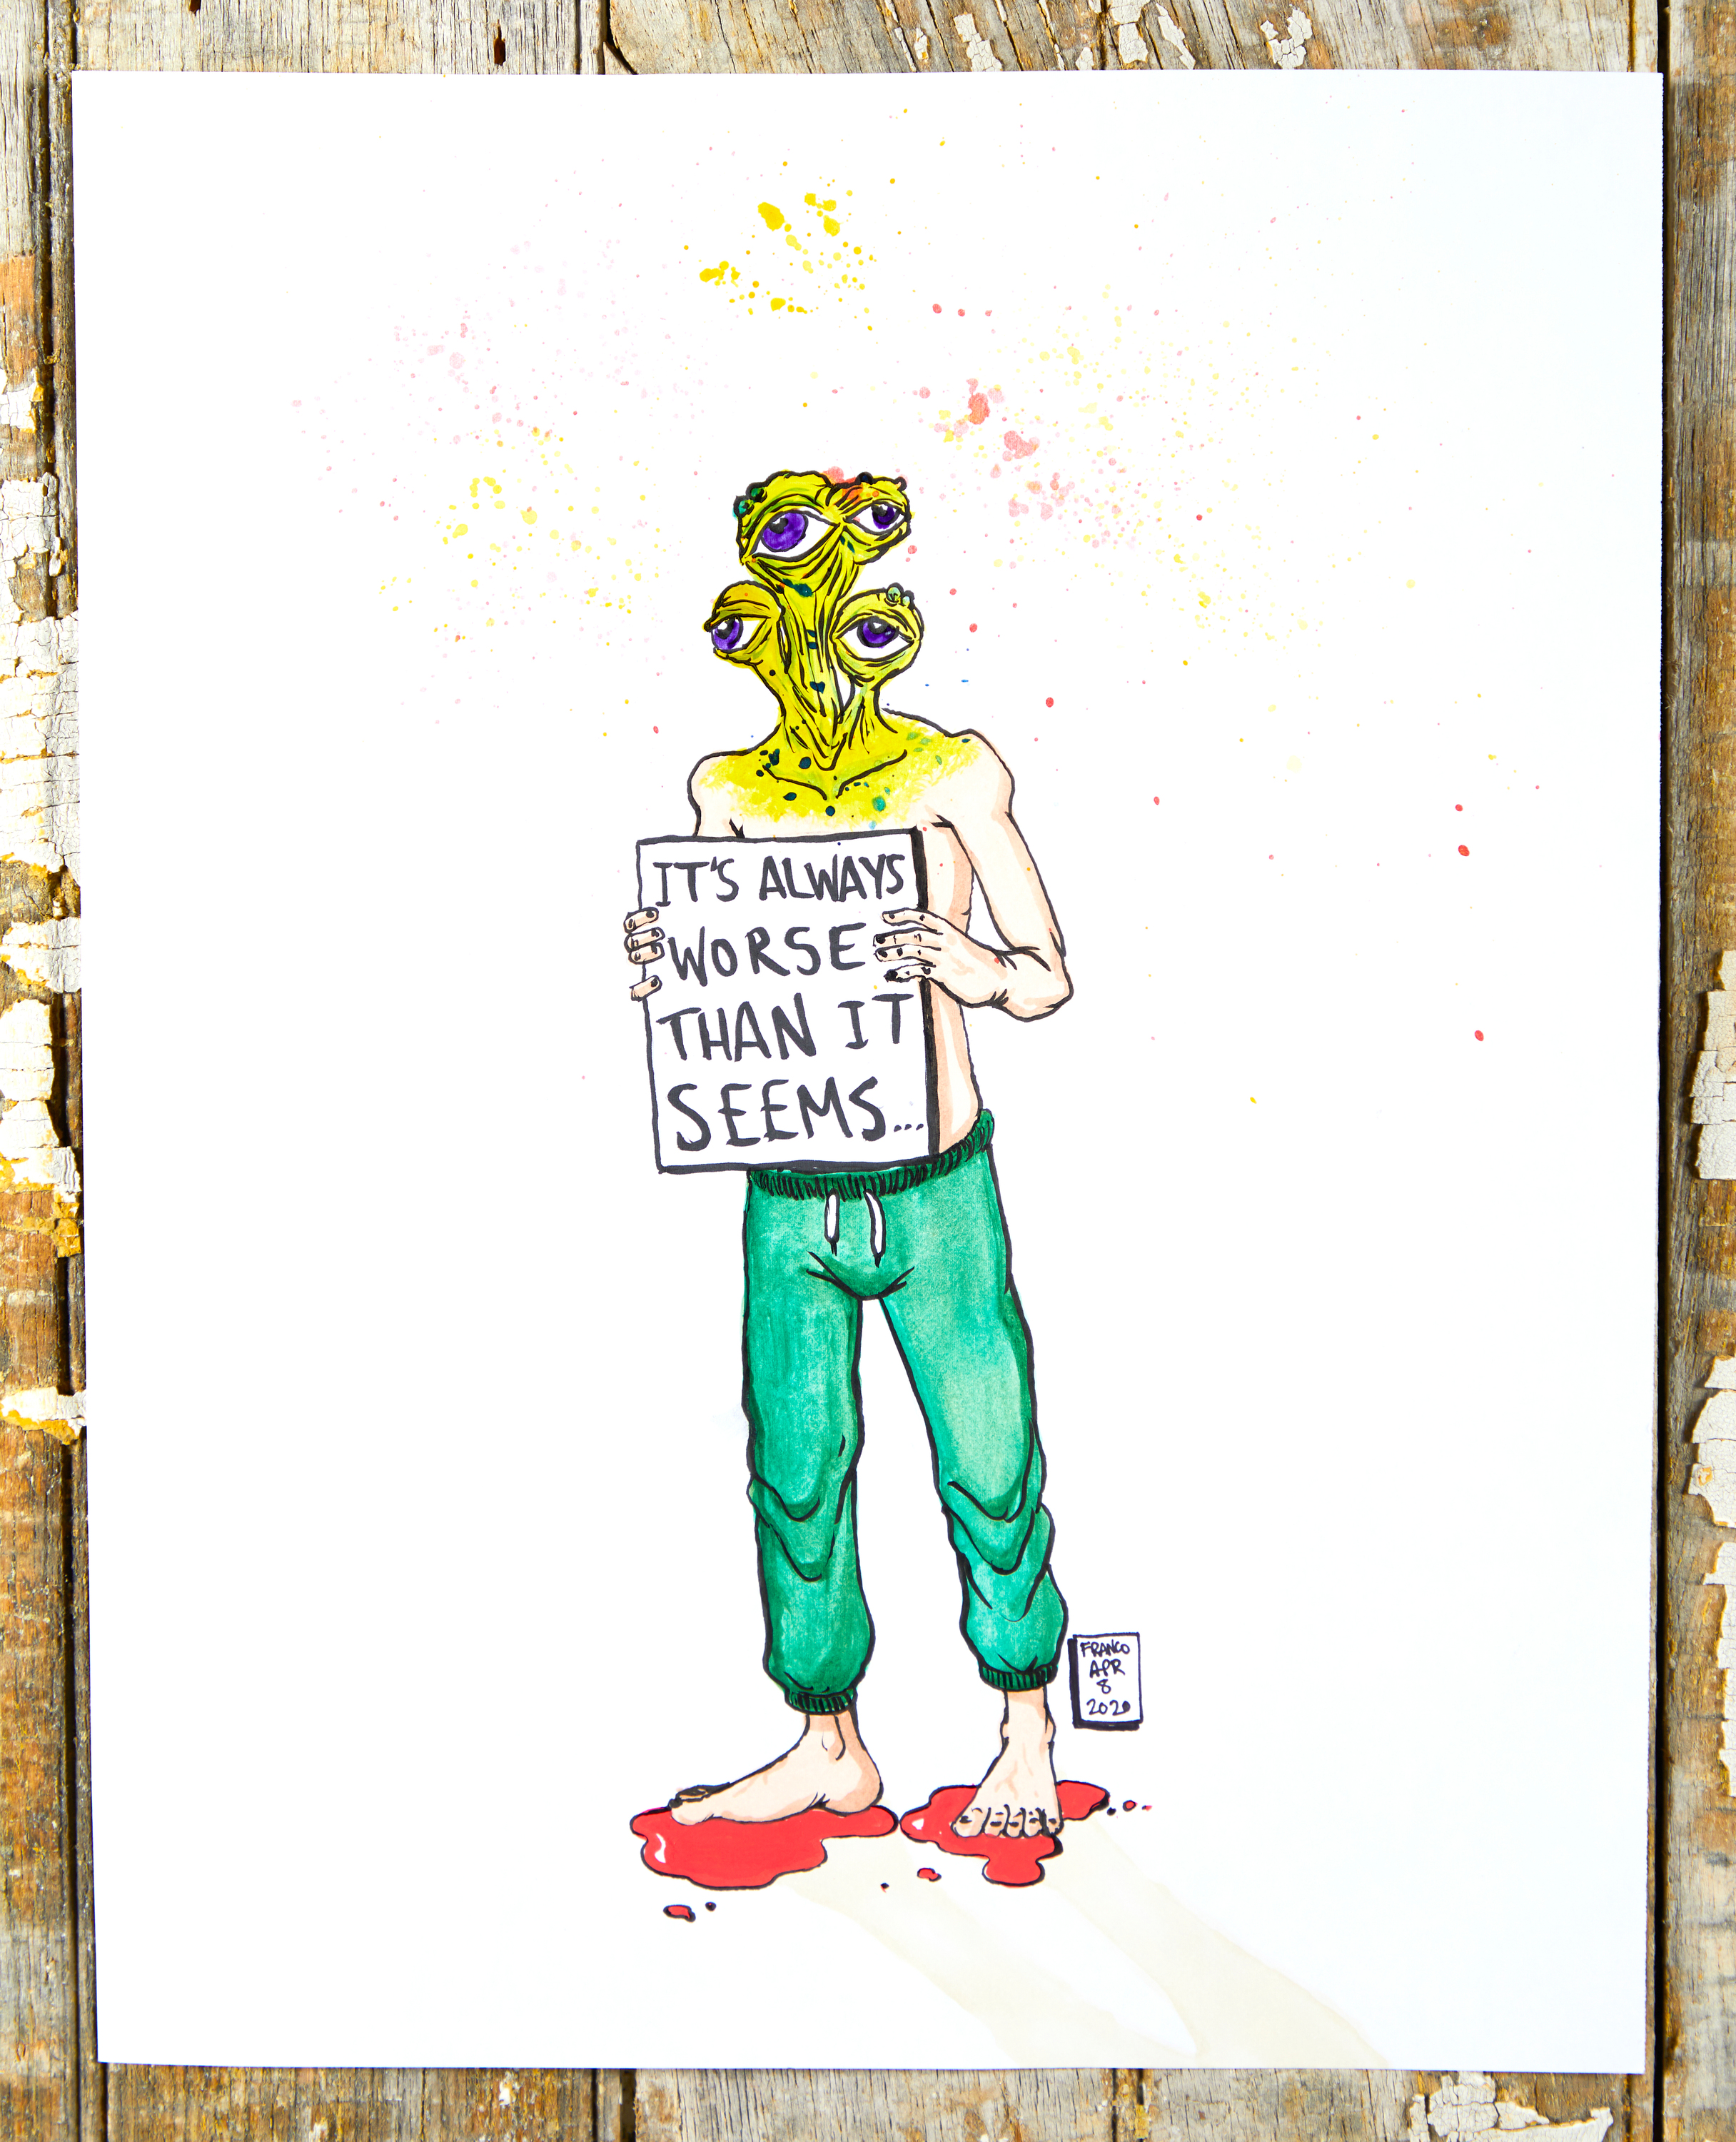 IT'S ALWAYS
WORSE
THAN IT
SEEMS...
FRANCO
APR
8
2020